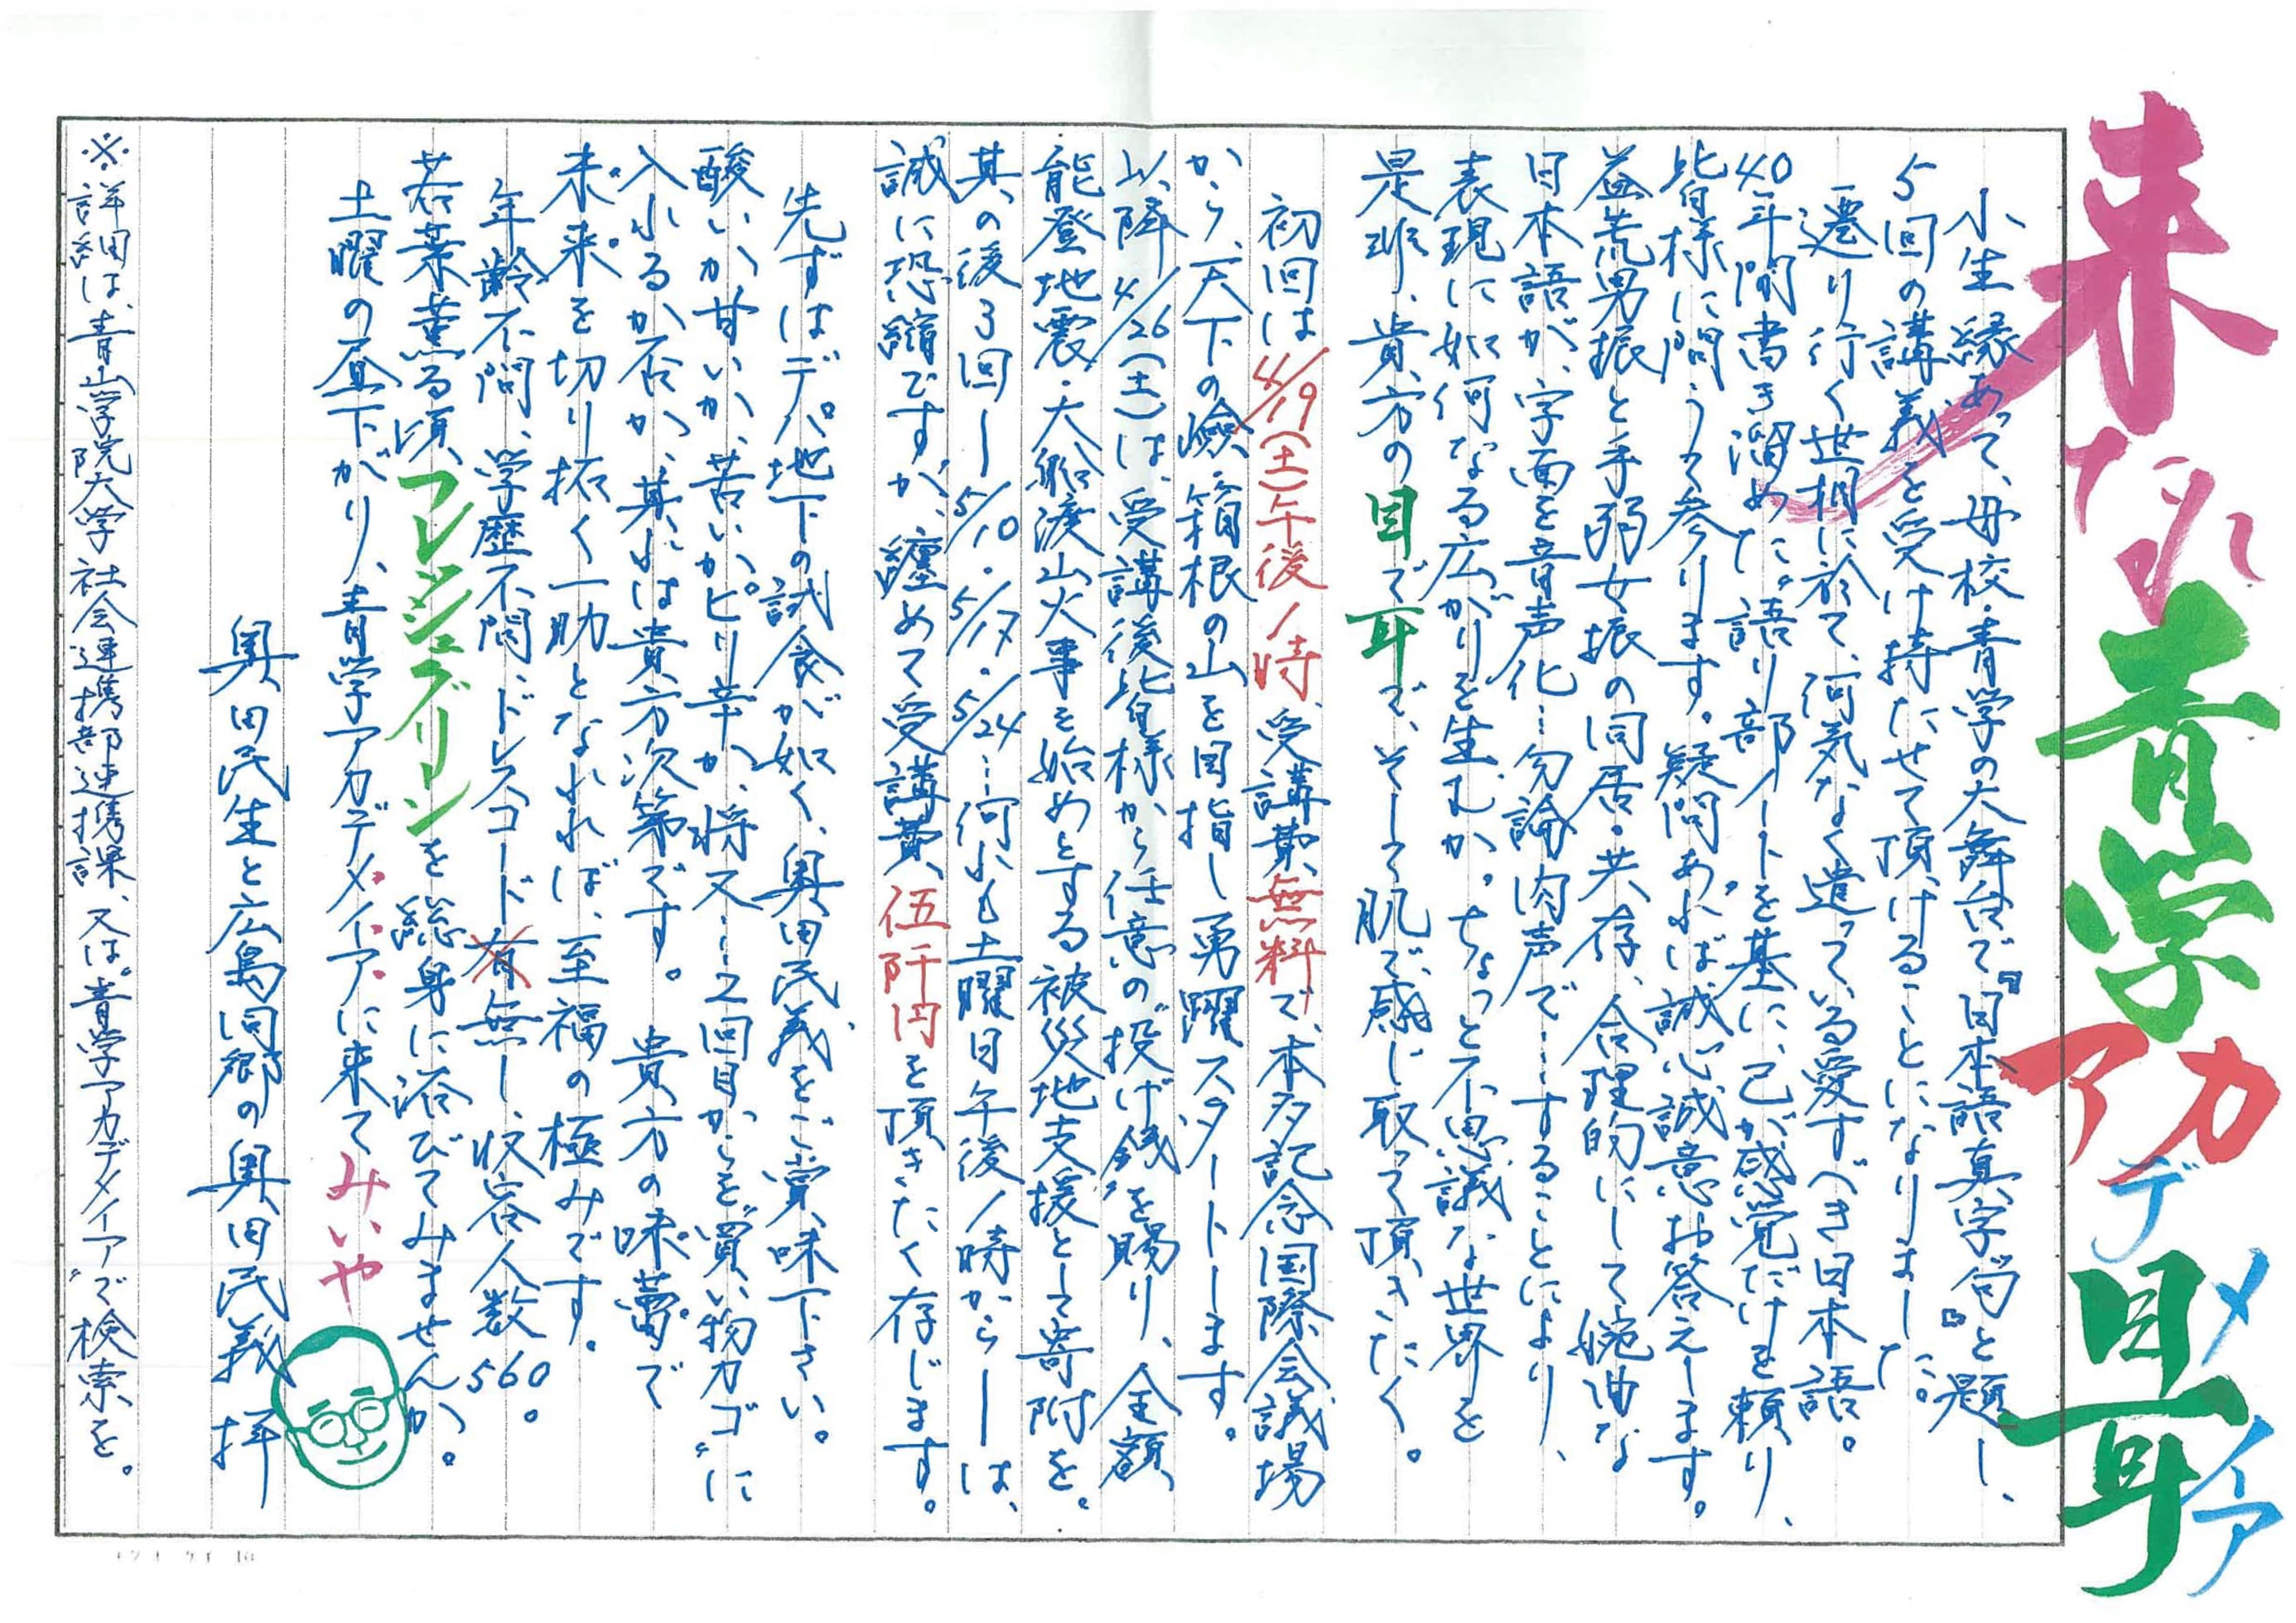 来たれ青学アカデメイア目耳
小生縁あって、母校・青学の大舞台で『日本語真字句』と題し、
5回の講義を受け持たせて頂けることになりました。
遷り行く世相に於て、何気なく遣っている愛すべき日本語。
40年間書き溜めた“語り部ノート”を基に、己が感覚だけを頼り、
皆様に問うて参ります。疑問あれば誠心誠意お答えします。
益荒男振と手弱女振の同居・共存、合理的にして婉曲な
日本語が、字面を音声化…勿論肉声で…することにより、
表現に如何なる広がりを生むか。ちょっと不思議な世界を
是非、貴方の目で耳で、そして肌で感じ取って頂きたく。
初回は4/19(土)午後1時、受講費無料で、本多記念国際会議場
から、天下の嶮・箱根の山を目指し勇躍スタートします。
以降4/26(土)は、受講後皆様から任意の“投げ銭”を賜り、全額
能登地震・大船渡山火事を始めとする被災地支援として寄附を。
其の後3回ー5/10・5/17・5/24…何れも土曜日午後1時からーは、
誠に恐縮ですが、纏めて受講費伍阡円を頂きたく存じます。
先ずはデパ地下の試食が如く、奥田民義をご賞味下さい。
酸いか甘いか、苦いかピリ辛か、将又…2回目からを“買い物カゴ”に
入れるか否か、其れは貴方次第です。貴方の味蕾で
未来を切り拓く一助となれれば、至福の極みです。
年齢不問、学歴不問、ドレスコード有無し、収容人数560。
若葉薫る頃、フレッシュグリーンを総身に浴びてみませんか。
土曜の昼下がり、青学アカデメイアに来てみいや
奥田民生と広島同郷の奥田民義 拝
※詳細は、青山学院大学社会連携部連携課、又は“青学アカデメイア”で検索を。